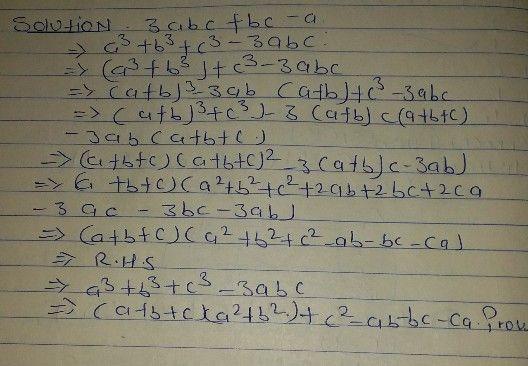 Solution. 3abc + bc - a
=> a³ + b³ + c³ - 3abc.
=> (a³ + b³) + c³ - 3abc
=> (a+b)³ - 3ab (a+b) + c³ - 3abc
=> (a+b)³ + c³) - 3 (a+b) c (a+b+c)
- 3ab (a+b+c)
=> (a+b+c) (a+b+c)² - 3(a+b)c - 3ab)
=> (a +b+c) (a²+b²+c²+2ab+2bc+2ca
- 3ac - 3bc - 3ab)
=> (a+b+c) (a²+b²+c²-ab-bc-ca)
=> R.H.S
=> a³ + b³ + c³ - 3abc
=> (a+b+c)(a²+b²)+c²-ab-bc-ca.